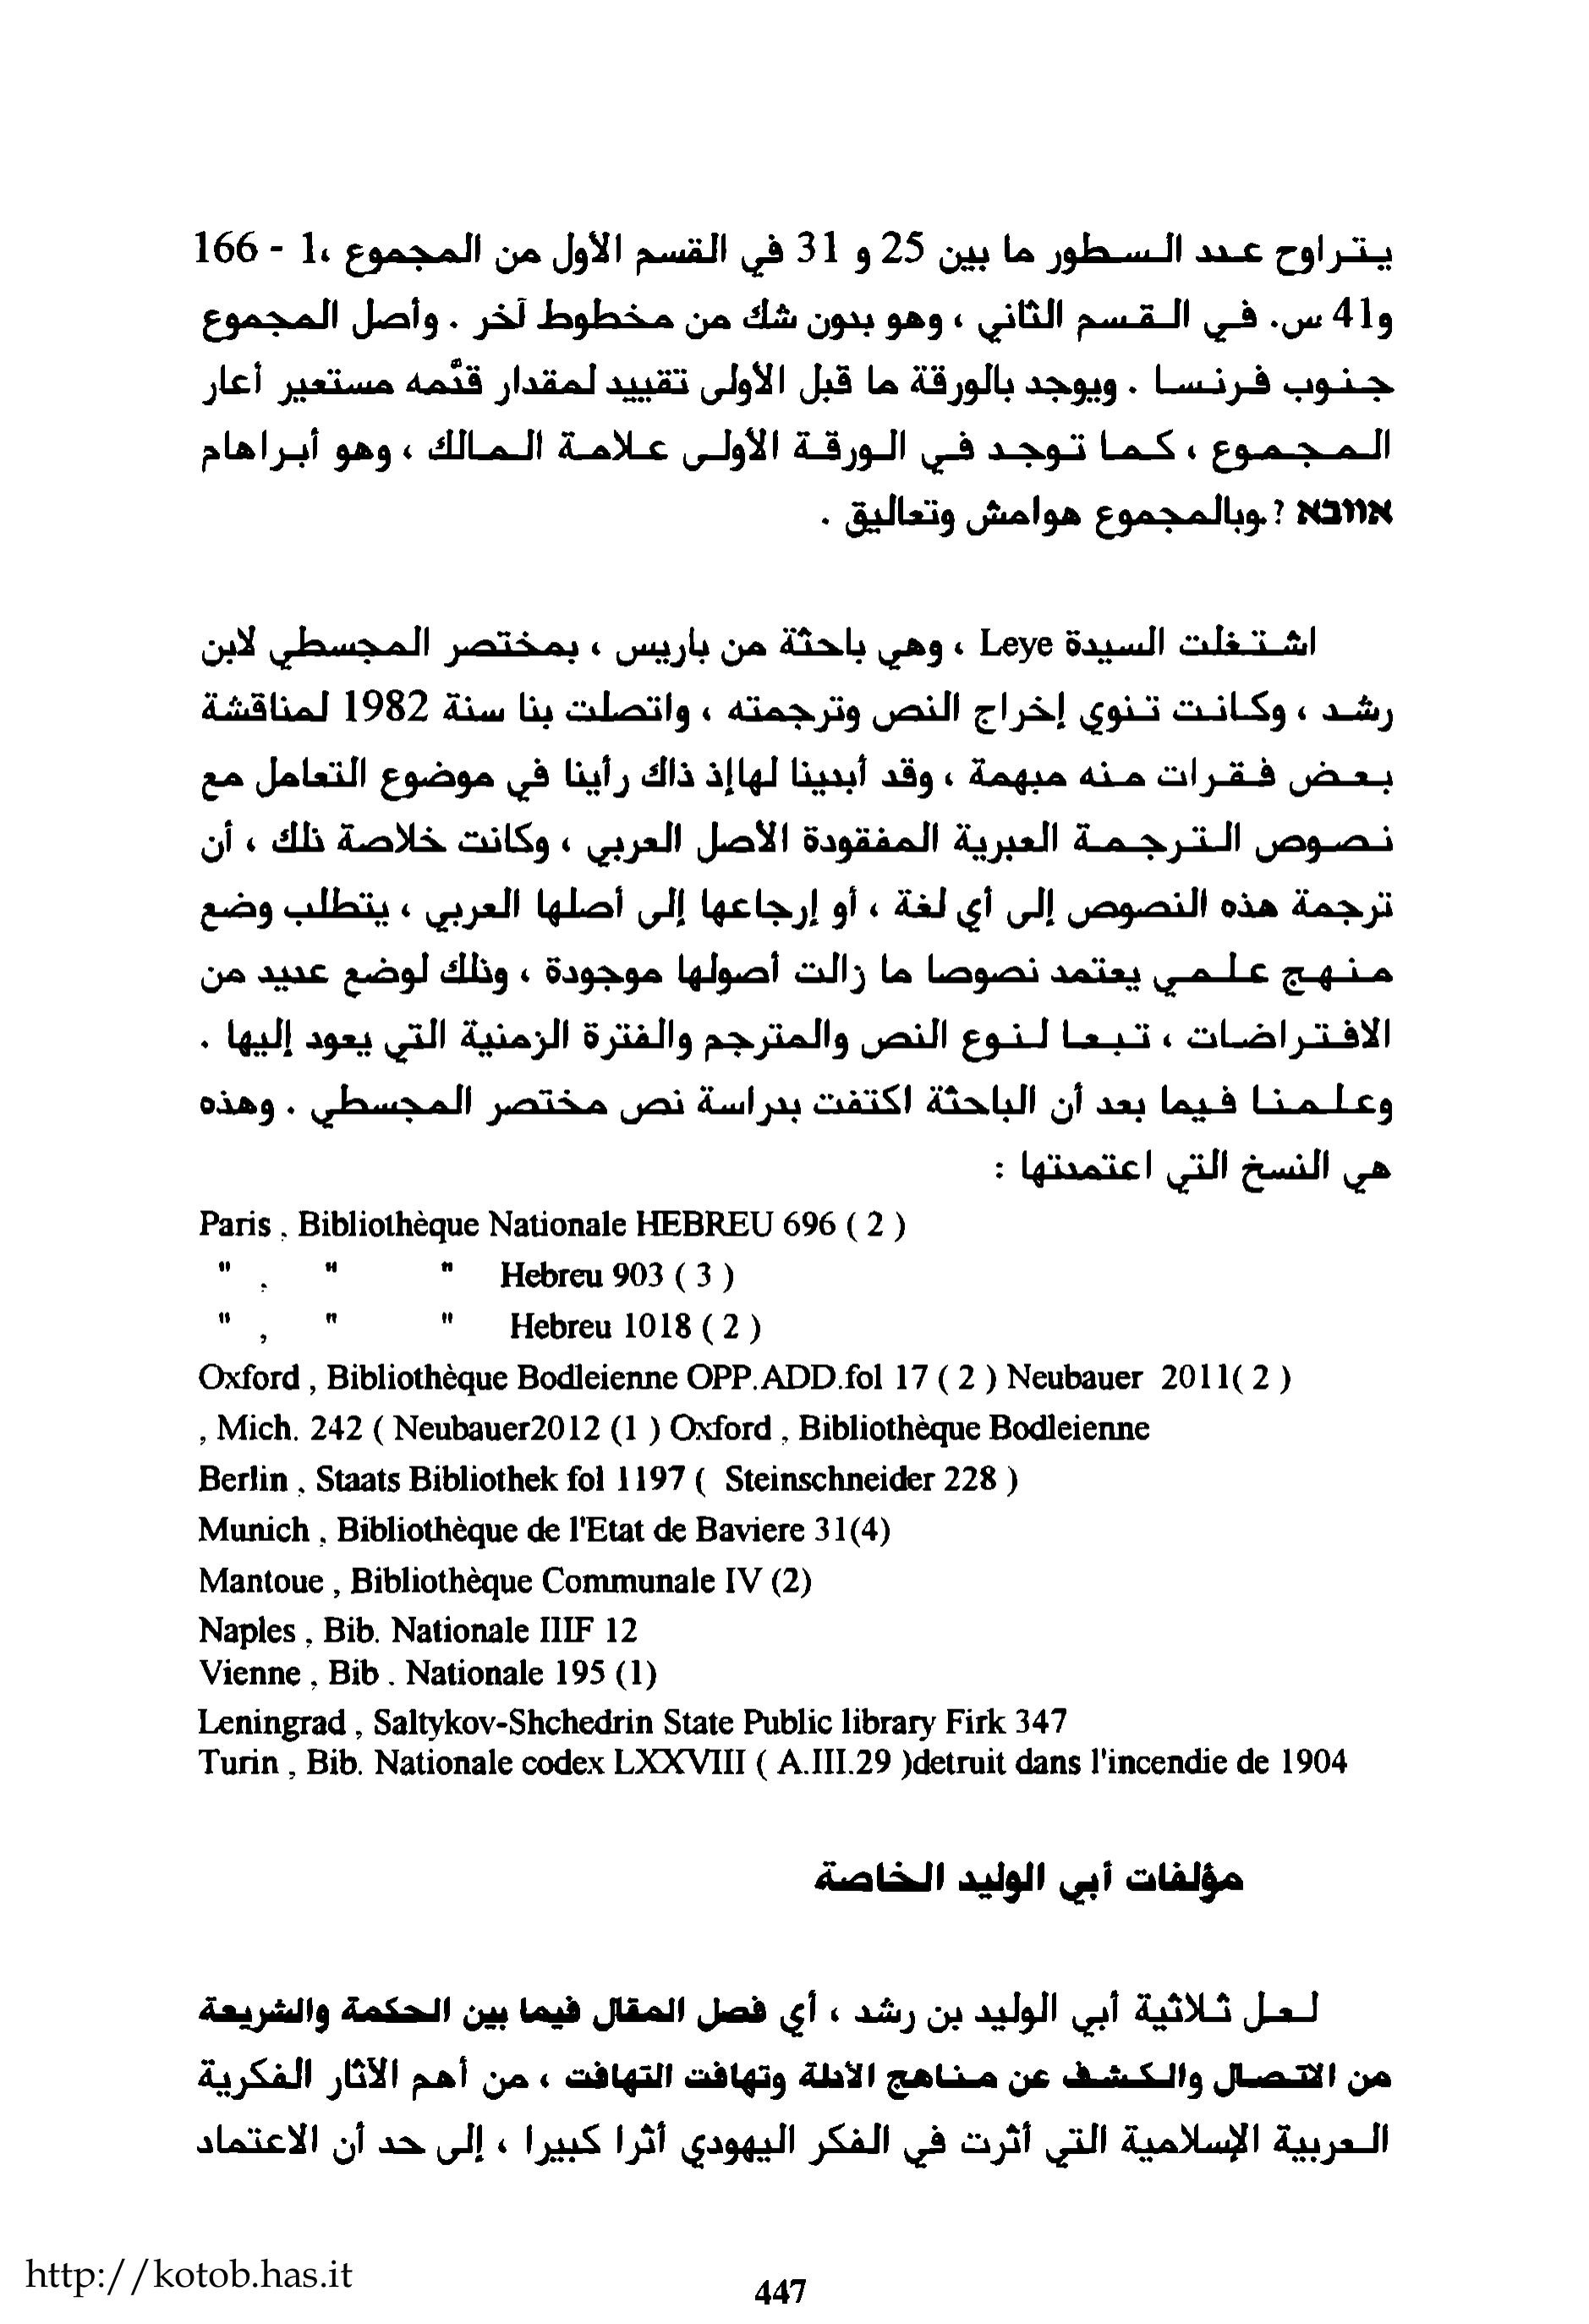 يتراوح عدد السطور ما بين 25 و 31 في القسم الأول من المجموع ،1 - 166
و41 س. في القسم الثاني ، وهو بدون شك من مخطوط آخر . وأصل المجموع
جنوب فرنسا . ويوجد بالورقة ما قبل الأولى تقييد لمقدار قدّمه مستعير أعار
المجموع ، كما توجد في الورقة الأولى علامة المالك ، وهو أبراهام
אוובא ? .وبالمجموع هوامش وتعاليق .
اشتغلت السيدة Leye ، وهي باحثة من باريس ، بمختصر المجسطي لابن
رشد ، وكانت تنوي إخراج النص وترجمته ، واتصلت بنا سنة 1982 لمناقشة
بعض فقرات منه مبهمة ، وقد أبدينا لهاإذ ذاك رأينا في موضوع التعامل مع
نصوص الترجمة العبرية المفقودة الأصل العربي ، وكانت خلاصة ذلك ، أن
ترجمة هذه النصوص إلى أي لغة ، أو إرجاعها إلى أصلها العربي ، يتطلب وضع
منهج علمي يعتمد نصوصا ما زالت أصولها موجودة ، وذلك لوضع عديد من
الافتراضات ، تبعا لنوع النص والمترجم والفترة الزمنية التي يعود إليها .
وعلمنا فيما بعد أن الباحثة اكتفت بدراسة نص مختصر المجسطي . وهذه
هي النسخ التي اعتمدتها :
Paris , Bibliothèque Nationale HEBREU 696 ( 2 )
" , " " Hebreu 903 ( 3 )
" , " " Hebreu 1018 ( 2 )
Oxford , Bibliothèque Bodleienne OPP.ADD.fol 17 ( 2 ) Neubauer 2011( 2 )
, Mich. 242 ( Neubauer2012 (1 ) Oxford , Bibliothèque Bodleienne
Berlin , Staats Bibliothek fol 1197 ( Steinschneider 228 )
Munich , Bibliothèque de l'Etat de Baviere 31(4)
Mantoue , Bibliothèque Communale IV (2)
Naples , Bib. Nationale IIIF 12
Vienne , Bib . Nationale 195 (1)
Leningrad , Saltykov-Shchedrin State Public library Firk 347
Turin , Bib. Nationale codex LXXVIII ( A.III.29 )detruit dans l'incendie de 1904
مؤلفات أبي الوليد الخاصة
لعل ثلاثية أبي الوليد بن رشد ، أي فصل المقال فيما بين الحكمة والشريعة
من الاتصال والكشف عن مناهج الأدلة وتهافت التهافت ، من أهم الآثار الفكرية
العربية الإسلامية التي أثرت في الفكر اليهودي أثرا كبيرا ، إلى حد أن الاعتماد
http://kotob.has.it
447